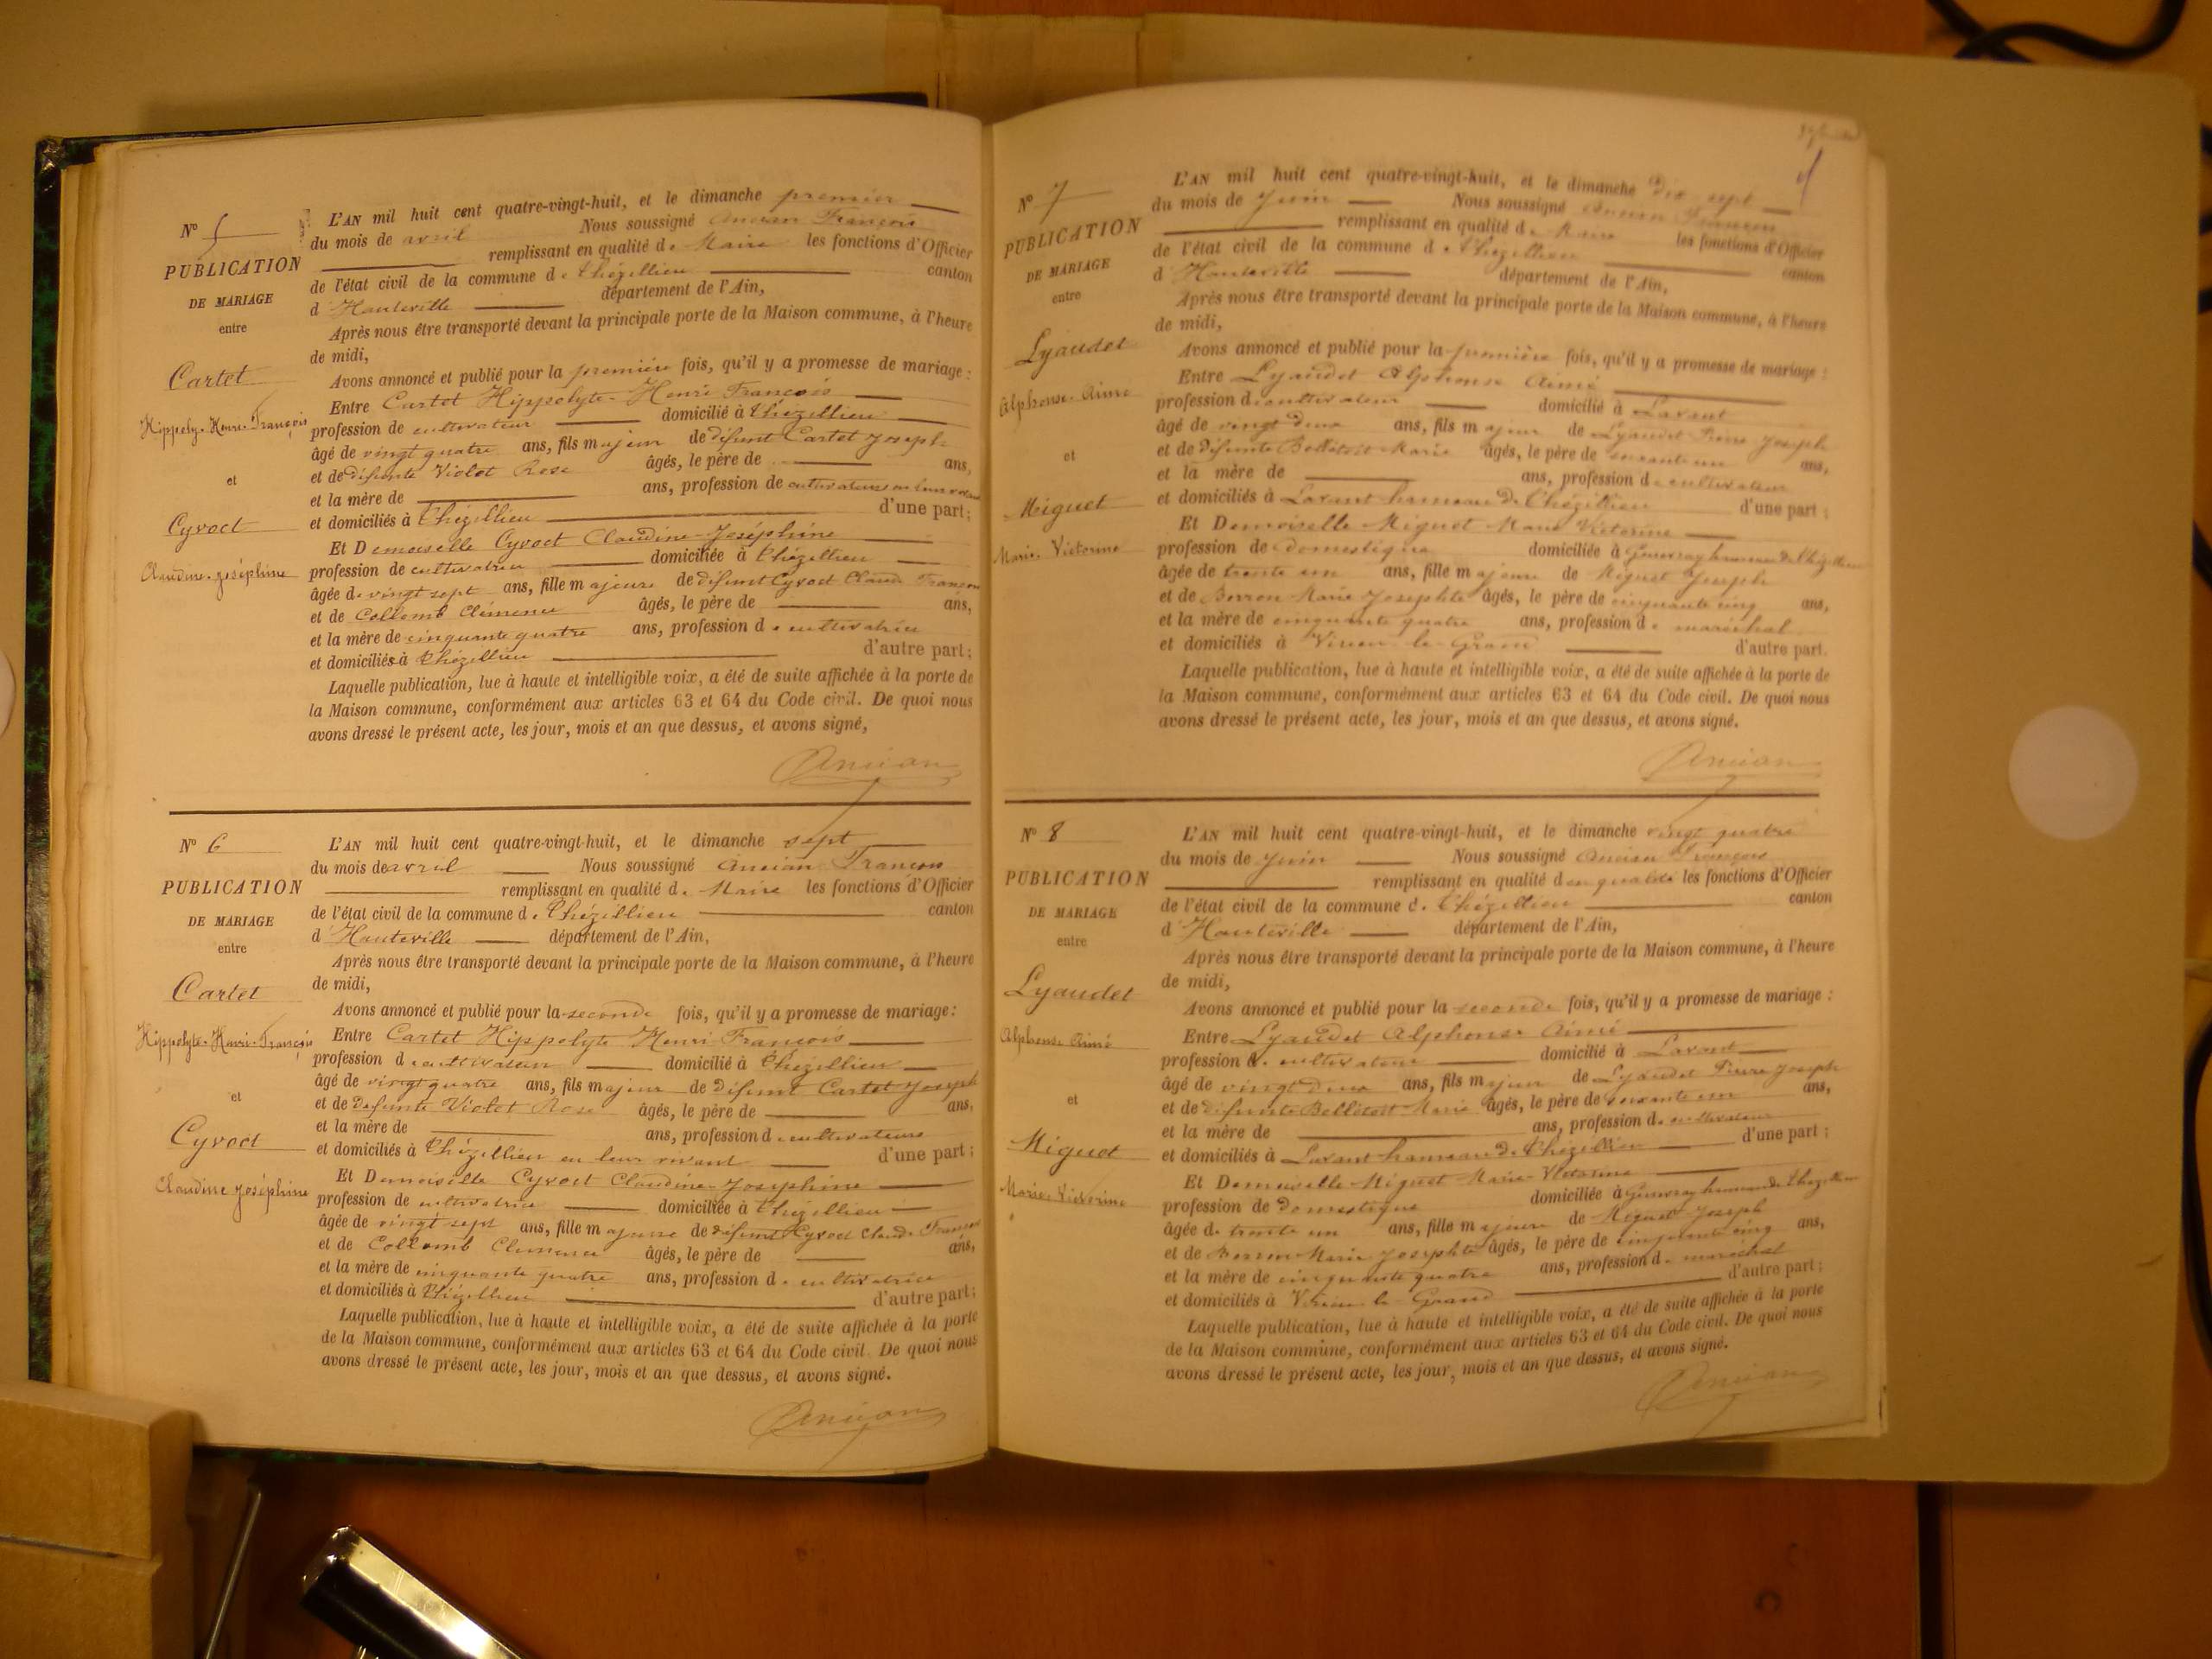 Nº 5
PUBLICATION
DE MARIAGE
entre
Cartet
Hippoly. Henri. François
et
Cyvoct
Claudine. Joséphine
L'AN mil huit cent quatre-vingt-huit, et le dimanche premier
du mois de avril Nous soussigné Ancian François
remplissant en qualité de Maire les fonctions d'Officier
de l'état civil de la commune de Thézillieu canton
d'Hauteville département de l'Ain,
Après nous être transporté devant la principale porte de la Maison commune, à l'heure
de midi,
Avons annoncé et publié pour la première fois, qu'il y a promesse de mariage :
Entre Cartet Hippolyte-Henri François
profession de cultivateur domicilié à Thézillieu
âgé de vingt quatre ans, fils majeur de défunt Cartet Joseph
et de défunte Violet Rose âgés, le père de ans,
et la mère de ans, profession de cultivateurs en leur vivant
et domiciliés à Thézillieu d'une part ;
Et Demoiselle Cyvoct Claudine-Joséphine
profession de cultivatrice domiciliée à Thézillieu
âgée de vingt sept ans, fille majeure de défunt Cyvoct Claude François
et de Collomb Clémence âgés, le père de ans,
et la mère de cinquante quatre ans, profession de cultivatrice
et domiciliés à Thézillieu d'autre part ;
Laquelle publication, lue à haute et intelligible voix, a été de suite affichée à la porte de
la Maison commune, conformément aux articles 63 et 64 du Code civil. De quoi nous
avons dressé le présent acte, les jour, mois et an que dessus, et avons signé,
Ancian
Nº 6
PUBLICATION
DE MARIAGE
entre
Cartet
Hippolyte-Henri-François
et
Cyvoct
Claudine Joséphine
L'AN mil huit cent quatre-vingt-huit, et le dimanche sept
du mois de avril Nous soussigné Ancian François
remplissant en qualité de Maire les fonctions d'Officier
de l'état civil de la commune de Thézillieu canton
d'Hauteville département de l'Ain,
Après nous être transporté devant la principale porte de la Maison commune, à l'heure
de midi,
Avons annoncé et publié pour la seconde fois, qu'il y a promesse de mariage :
Entre Cartet Hippolyte Henri François
profession de cultivateur domicilié à Thézillieu
âgé de vingt quatre ans, fils majeur de défunt Cartet Joseph
et de Défunte Violet Rose âgés, le père de ans,
et la mère de ans, profession de cultivateurs
et domiciliés à Thézillieu en leur vivant d'une part ;
Et Demoiselle Cyvoct Claudine-Joséphine
profession de cultivatrice domiciliée à Thézillieu
âgée de vingt sept ans, fille majeure de défunt Cyvoct Claude François
et de Collomb Clémence âgés, le père de ans,
et la mère de cinquante quatre ans, profession de cultivatrice
et domiciliés à Thézillieu d'autre part ;
Laquelle publication, lue à haute et intelligible voix, a été de suite affichée à la porte
de la Maison commune, conformément aux articles 63 et 64 du Code civil. De quoi nous
avons dressé le présent acte, les jour, mois et an que dessus, et avons signé.
Ancian
Nº 7
PUBLICATION
DE MARIAGE
entre
Lyaudet
Alphonse. Aimé
et
Miguet
Marie. Victorine
L'AN mil huit cent quatre-vingt-huit, et le dimanche dix sept
du mois de Juin Nous soussigné Ancian François
remplissant en qualité de Maire les fonctions d'Officier
de l'état civil de la commune de Thézillieu canton
d'Hauteville département de l'Ain,
Après nous être transporté devant la principale porte de la Maison commune, à l'heure
de midi,
Avons annoncé et publié pour la première fois, qu'il y a promesse de mariage :
Entre Lyaudet Alphonse Aimé
profession de cultivateur domicilié à Lavant
âgé de vingt deux ans, fils majeur de Lyaudet Pierre Joseph
et de défunte Belletoit Marie âgés, le père de soixante un ans,
et la mère de ans, profession de cultivateur
et domiciliés à Lavant hameau de Thézillieu d'une part ;
Et Demoiselle Miguet Marie Victorine
profession de domestique domiciliée à hameau de Thézillieu
âgée de trente un ans, fille majeure de Miguet Joseph
et de Borron Marie Josephte âgés, le père de cinquante cinq ans,
et la mère de cinquante quatre ans, profession de maréchal
et domiciliés à Virieu-le-Grand d'autre part.
Laquelle publication, lue à haute et intelligible voix, a été de suite affichée à la porte de
la Maison commune, conformément aux articles 63 et 64 du Code civil. De quoi nous
avons dressé le présent acte, les jour, mois et an que dessus, et avons signé.
Ancian
Nº 8
PUBLICATION
DE MARIAGE
entre
Lyaudet
Alphonse Aimé
et
Miguet
Marie. Victorine
L'AN mil huit cent quatre-vingt-huit, et le dimanche vingt quatre
du mois de Juin Nous soussigné Ancian François
remplissant en qualité d en qualité les fonctions d'Officier
de l'état civil de la commune de Thézillieu canton
d'Hauteville département de l'Ain,
Après nous être transporté devant la principale porte de la Maison commune, à l'heure
de midi,
Avons annoncé et publié pour la seconde fois, qu'il y a promesse de mariage :
Entre Lyaudet Alphonse Aimé
profession de cultivateur domicilié à Lavant
âgé de vingt deux ans, fils majeur de Lyaudet Pierre Joseph
et de défunte Belletoit Marie âgés, le père de soixante un ans,
et la mère de ans, profession de cultivateur
et domiciliés à Lavant hameau de Thézillieu d'une part ;
Et Demoiselle Miguet Marie-Victorine
profession de domestique domiciliée à hameau de Thézillieu
âgée de trente un ans, fille majeure de Miguet Joseph
et de Borron Marie Josephte âgés, le père de cinquante cinq ans,
et la mère de cinquante quatre ans, profession de maréchal
et domiciliés à Virieu-le-Grand d'autre part ;
Laquelle publication, lue à haute et intelligible voix, a été de suite affichée à la porte
de la Maison commune, conformément aux articles 63 et 64 du Code civil. De quoi nous
avons dressé le présent acte, les jour, mois et an que dessus, et avons signé.
Ancian